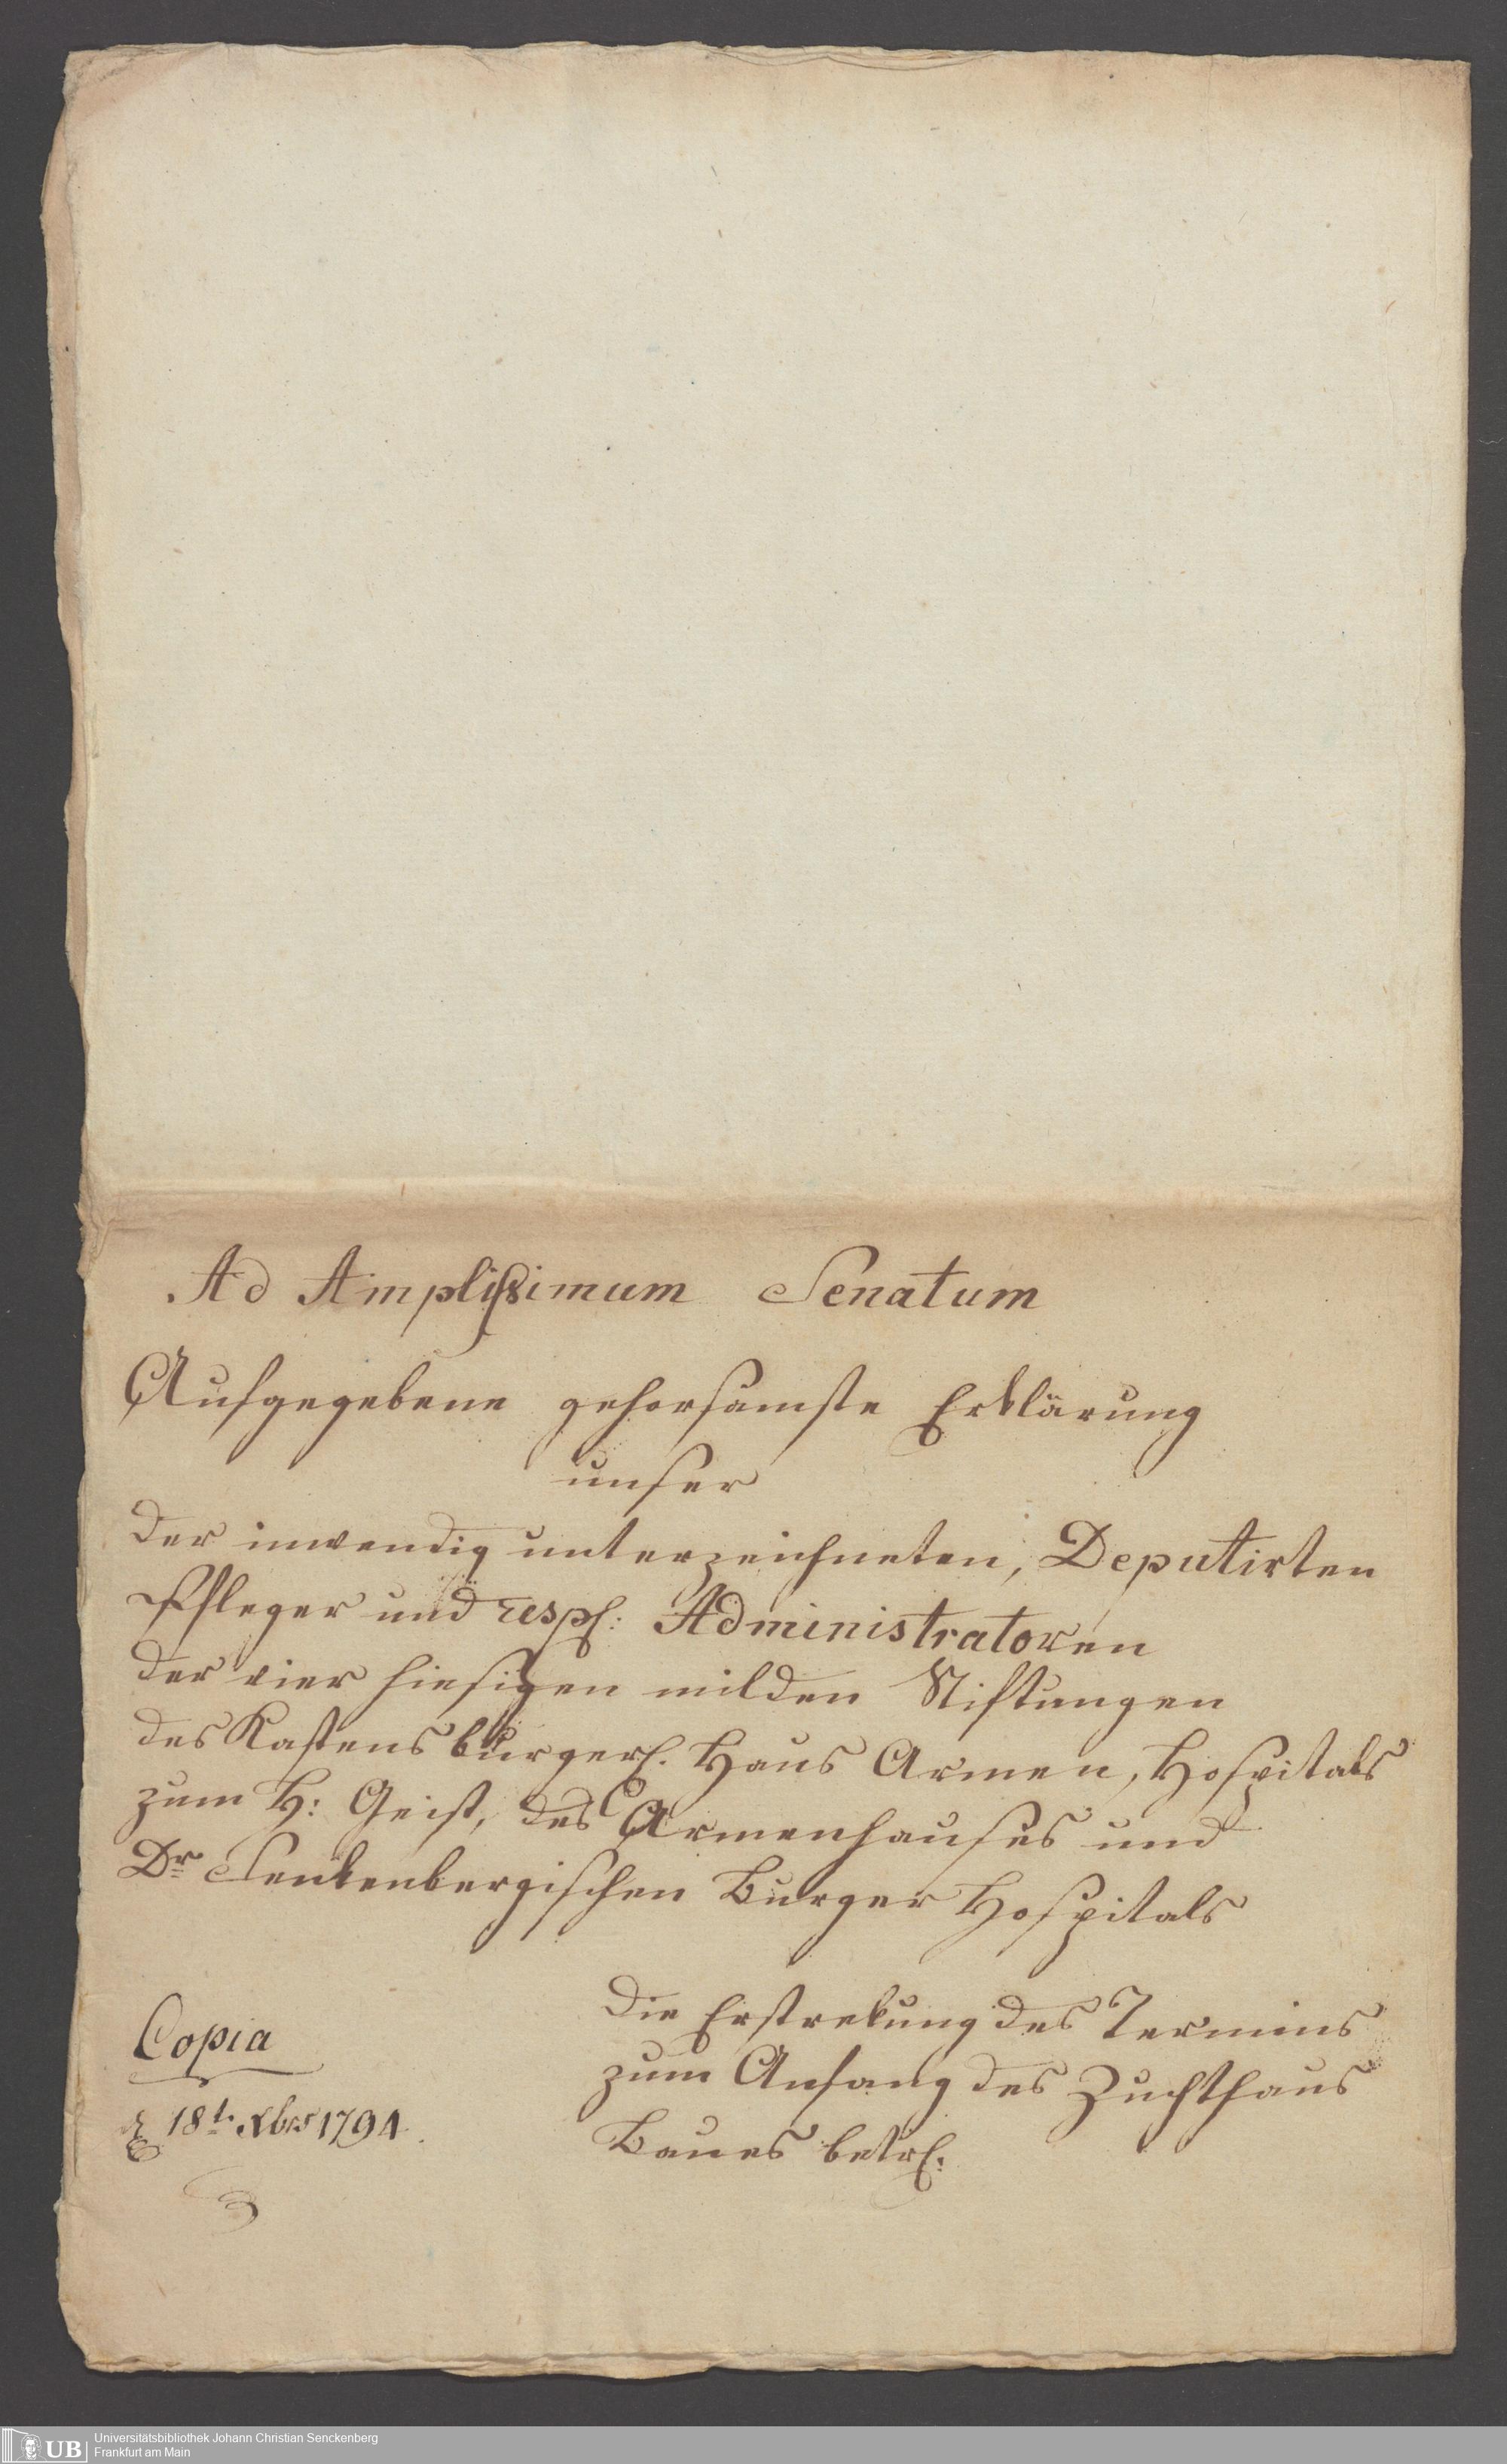 Ad Amplißimum Senatum
Aufgegebene gehorsamste Erklärung
unser
der inwendig unterzeichneten, Deputirten
Pfleger und resp: Administratoren
der vier hiesigen milden Stiftungen
des Kastens burgerl. Haus Armen, Hospitals
zum H: Geist, des Armenhauses und
Dr Senkenbergischen Burger Hospitals
Die Erstrekung des Termins
zum Anfang des Zuchthaus
Baues betrf:
Copia
18t Xbrs 1794.
UB
Universitätsbibliothek Johann Christian Senckenberg
Frankfurt am Main